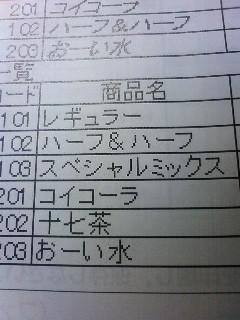 201 コイコーラ
102 ハーフ&ハーフ
203 おーい水
一覧
コード 商品名
101 レギュラー
102 ハーフ&ハーフ
103 スペシャルミックス
201 コイコーラ
202 十七茶
203 おーい水